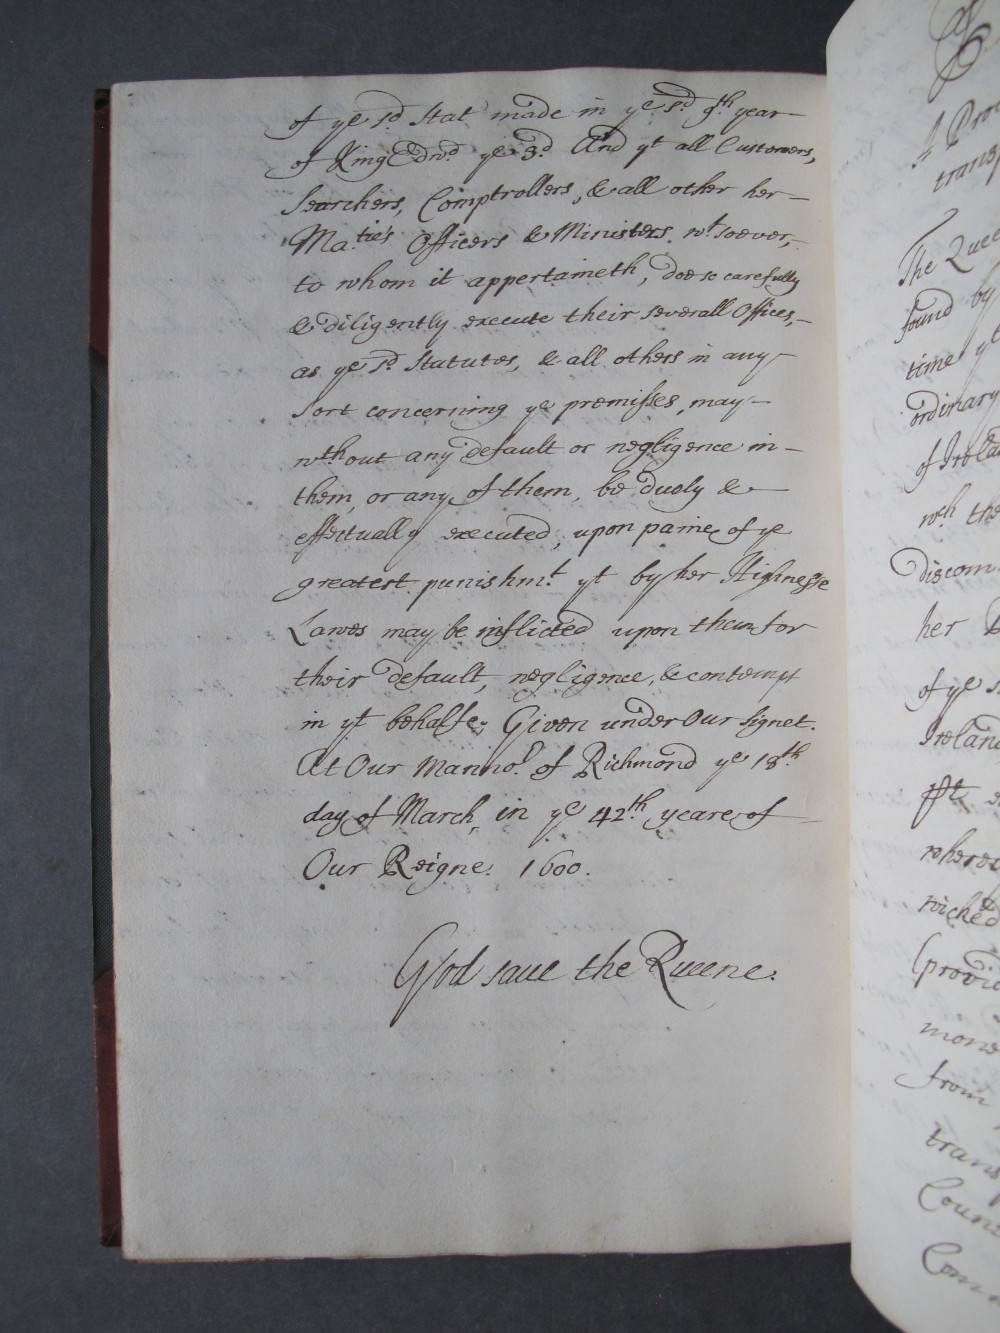 of ye sd Stat made in ye sd 9th year
of King Edwd ye 3d And yt all Customers,
Searchers, Comptrollers, & all other her
Maties Officers & Ministers wt soever,
to whom it appertaineth, doe so carefully
& diligently execute their severall Offices,
as ye sd Statutes, & all others in any
sort concerning ye premisses, may
wthout any default or negligence in
them, or any of them, be duely &
effectually executed, upon paine of ye
greatest punishmt yt by her Highnesse
Lawes may be inflicted upon them for
their default, negligence, & contempt
in yt behalfe; Given under Our Signet.
At Our Manno.r of Richmond ye 18th
day of March, in ye 42th yeare of
Our Reigne. 1600.
God save the Queene.
A Pro
trans
The Quee
found by
time y
ordinary
of Irelan
wch the
discom
her
of ye
Ireland
wheres
wicked
(provid
mone
from
trans
Coun
Com